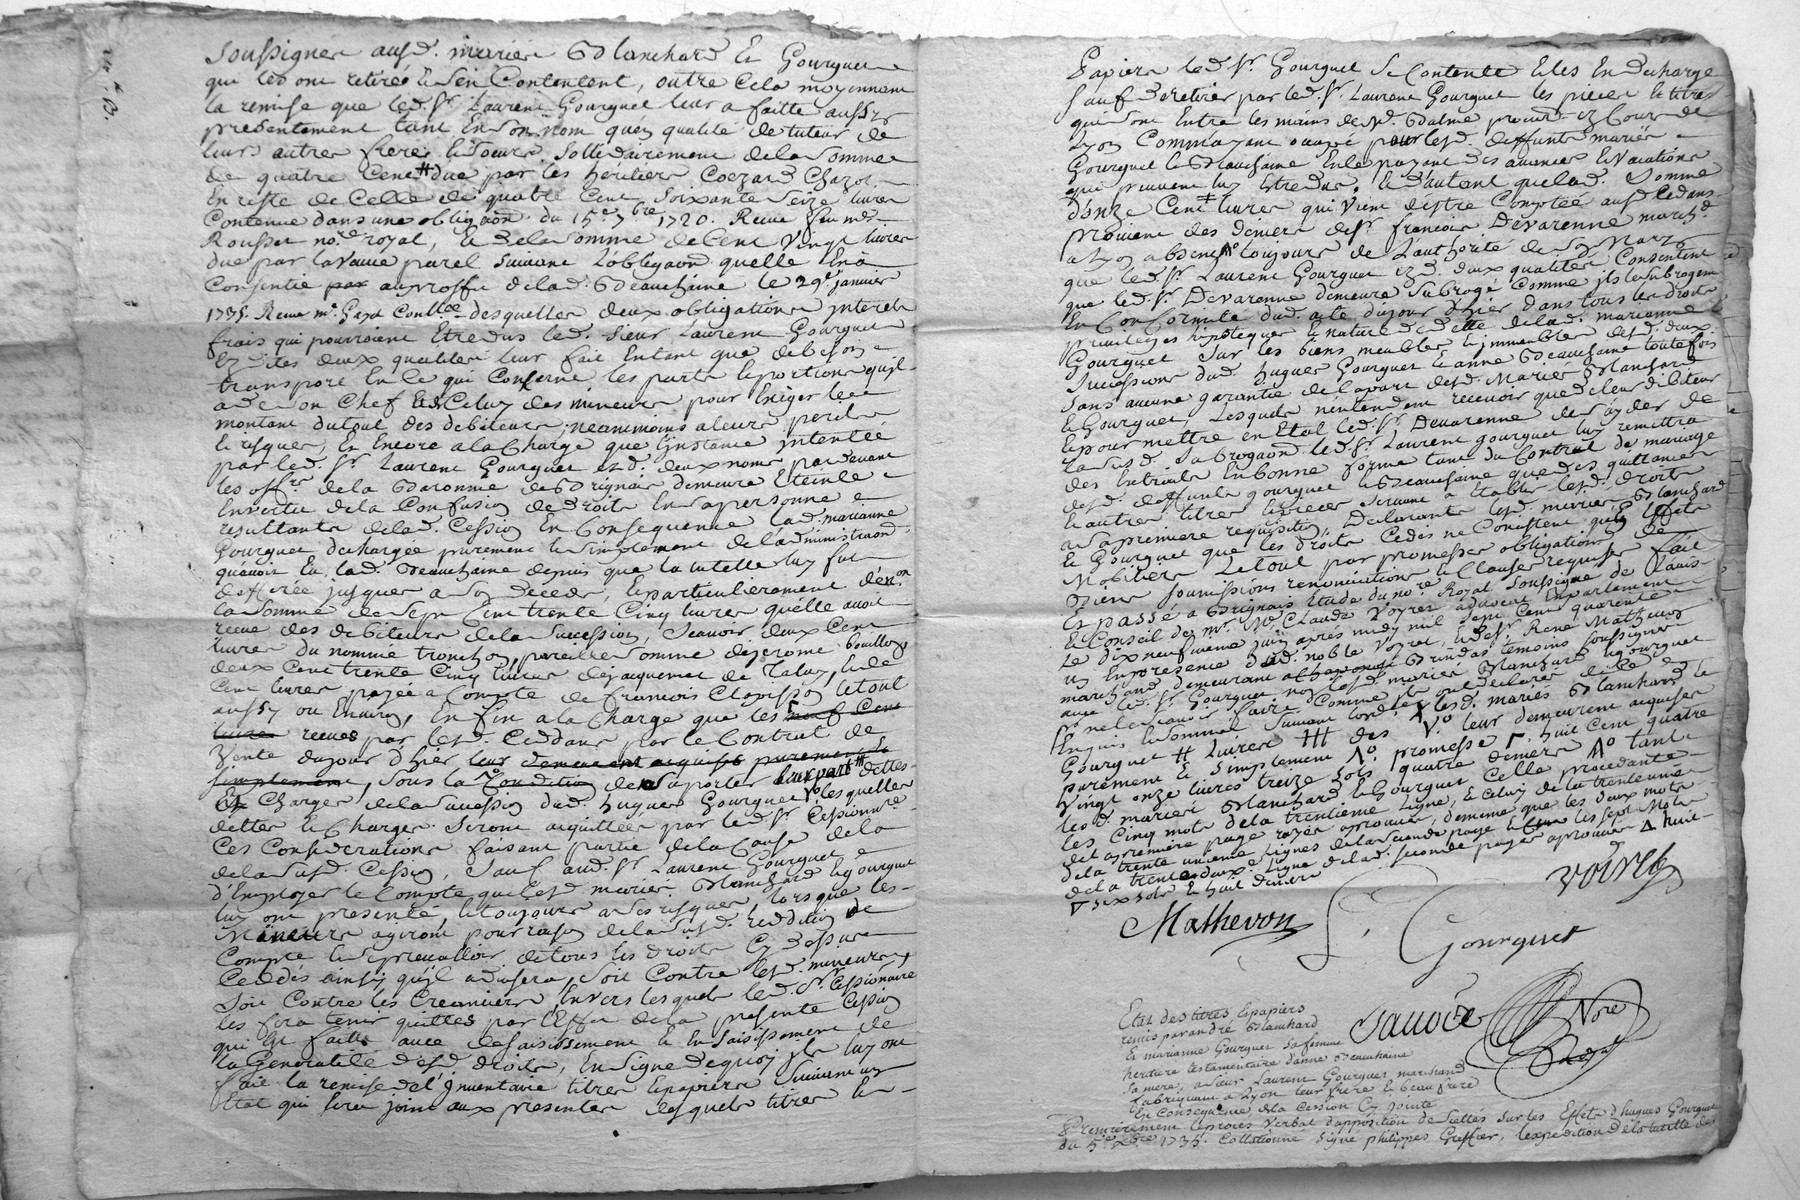 soussignés ausd. mariés Blanchard et Gourguet
qui les ont retirés et s'en Contentent, outre cela moyennant
la remise que led. Sr. Laurent Gourguet leur a faitte aussy
presentement tant En son nom qu'en qualité de tuteur de
leurs autres freres et soeurs sollidairement de la somme
de quatre Cent # due par les heritiers Chazot
En reste de Celle de quatre Cent soixante seize livres
Contenue dans une obligaon. du 15e. 7bre 1720. Receue feu me.
Rousset nore. royal, et de la somme de Cent vingt livres
due par la Vauve purel suivant l'obligaon. quelle En a
Consentie par au proffit de lad. Beauchaine le 29e. janvier
1735. Receue me. desquelles deux obligations interets
frais qui pourroient Etre dus led. sieur Laurent Gourguet
Ez dites deux qualités leur fait Entant que de besoin
transport En Ce qui Conserne les parts et portions qu'il
a de son Chef et de Celuy des mineurs pour Exiger le
montant du tout des debiteurs, neantmoins a leurs perils
et risques, et Encore a la Charge que l'instance intentée
par led. Sr. Laurent Gourguet ezd. deux noms pardevant
les offrs. de la Baronnie de Brignais demeure Eteinte
En vertu de la Confusion de droits En sa personne
resultante de lad. Cession En Consequence lad. marianne
Gourguet dechargée purement et simplement de l'administraon.
qu'avoit Eu lad. Beauchaine depuis que la tutelle luy fut
defferée jusques a son deceds, et particulierement d'en
la somme de sept Cent trente Cinq livres qu'elle avoit
receue des debiteurs de la succession, scavoir deux Cent
livres du nommé tronchon, pareille somme de jerome bouillon
deux Cent trente Cinq livres de jacquemet de Taluy, et de
Cent livres payée a Compte de francois Clapisson le tout
aussy ou Environ, En fin a la Charge que les neuf Cent
livres receues par lesd. Cedants par le Contrat de
Vente du jour d'hier leur demeurent acquises purement et
simplement, sous la Condition de rapporter leur part dettes
et Charges de la succession dud. hugues Gourguet lesquelles
dettes et Charges seront acquittées par led. Sr. Cessionnre.
Ces Considerations faisant partie de la Cause de la
de la susd. Cession, sauf aud. Sr. Laurent Gourguet
d'Employer le Compte que lesd. mariés Blanchard et gourguet
luy ont presenté, et toujours a ses risques, lorsque les
Mineurs agiront pour raison de la susd. reddition de
Compte et se prevalloir de tous les droits Cy dessus
Ceddés ainsy qu'il advisera, soit Contre lesd. mineurs,
soit Contre les Creanciers, Envers lesquels led. Sr. Cessionnaire
les fera tenir quittes par l'Effet de la presente Cession
qui Est faitte avec desaisissement et Ensaisissement de
la Generalité desd. droits, En signe de quoy ils luy ont
fait la remise de l'Inventaire titres et papiers suivant un
Etat qui sera joint aux presentes desquels titres et
Papiers led. Sr. Gourguet se Contente et les En decharge
sauf a retirer par led. Sr. Laurent Gourguet les pieces et titres
qui sont Entre les mains de Me. Dalme procur. ez Cours de
Lyon Comme ayant occupé pour lesd. deffunts mariés
Gourguet et Beauchaine En le payant des avances et vacations
qui peuvent luy Estre dues, et d'autant que lad. somme
d'onze Cent # livres qui vient d'estre Comptée ausd. Cedants
provient des deniers de Sr. francois Devarenne march.
a Lyon absent toujours de l'authorité de
que led. Sr. Laurent Gourguet ezd. deux qualités Consentent
que led. Sr. Devarenne demeure subrogé Comme ils le subrogent
En Conformité dud. acte du jour d'hier dans tous les droits
privileges hipoteques et nature de dette de lad. marianne
Gourguet sur les biens meubles et immeubles desd. deux
successions dud. hugues Gourguet et anne Beauchaine toutefois
sans aucune garantie de la part desd. Mariés Blanchard
et Gourguet, lesquels n'entendent recevoir que de leur debiteur
et pour mettre en Etat led. Sr. Devarenne de s'ayder de
la susd. subrogaon. led. Sr. Laurent gourguet luy remettra
des Extraits En bonne forme tant du Contrat de mariage
desd. deffunts gourguet et Beauchaine que des quittances
et autres titres et pieces servant a Etablir lesd. droits
a sa premiere requisition, Declarants lesd. mariés Blanchard
et Gourguet que les droits Cedés ne Consistent qu'en Effets
Mobiliers. Le tout par promesses obligations de
Biens soumissions renonciations et Clauses requises fait
et passé a Brignais Etude du nore. Royal soussigné de l'avis
et Conseil de me. Me. Claude Voyret advocat En parlement
Le dix neufvieme juin après midy mil sept Cent quarente
un En presence dud. noble Voyret, et de Sr. René Mathevon
marchand demeurant a Brindas temoins soussignés
avec led. Sr. Gourguet, non lesd. mariés Blanchard et gourguet
pr. ne le scavoir faire Comme ils ont declaré de ce
Enquis et sommés suivant lord. lesd. mariés Blanchard et
Gourguet # livres ### des Vo leur demeurent acquises
purement et simplement Ao promesse huit Cent quatre
Vingt onze livres treize sols quatre deniers Ao tant
les d. mariés Blanchard et Gourguet Celle procedante
les Cinq mots de la trentieme ligne, et Celuy de la trentenuvie
de la premiere page rayés aprouvés, de meme que les deux mots
de la trente unieme lignes de la seconde page et les sept Mots
de la trente deuxe ligne de lad. seconde page aprouvés Δ huit
six sols et huit deniers
Voyret
Mathevon L. Gourguet
Etat des titres et papiers
remis par andré Blanchard
et marianne Gourguet sa femme
heritiere testamentaire d'anne Beauchaine
sa mere, a sieur Laurent Gourguet marchand
fabriquant a Lyon leur frere et beau frere
En Consequence de la Cession Cy jointe
Sauvée Nore
Premierement le procès verbal d'apposition de scellés sur les Effets d'hugues Gourguet
du 5e. Xbre 1735. Collationné signé philippes Greffier, l'expedition de la tutelle des